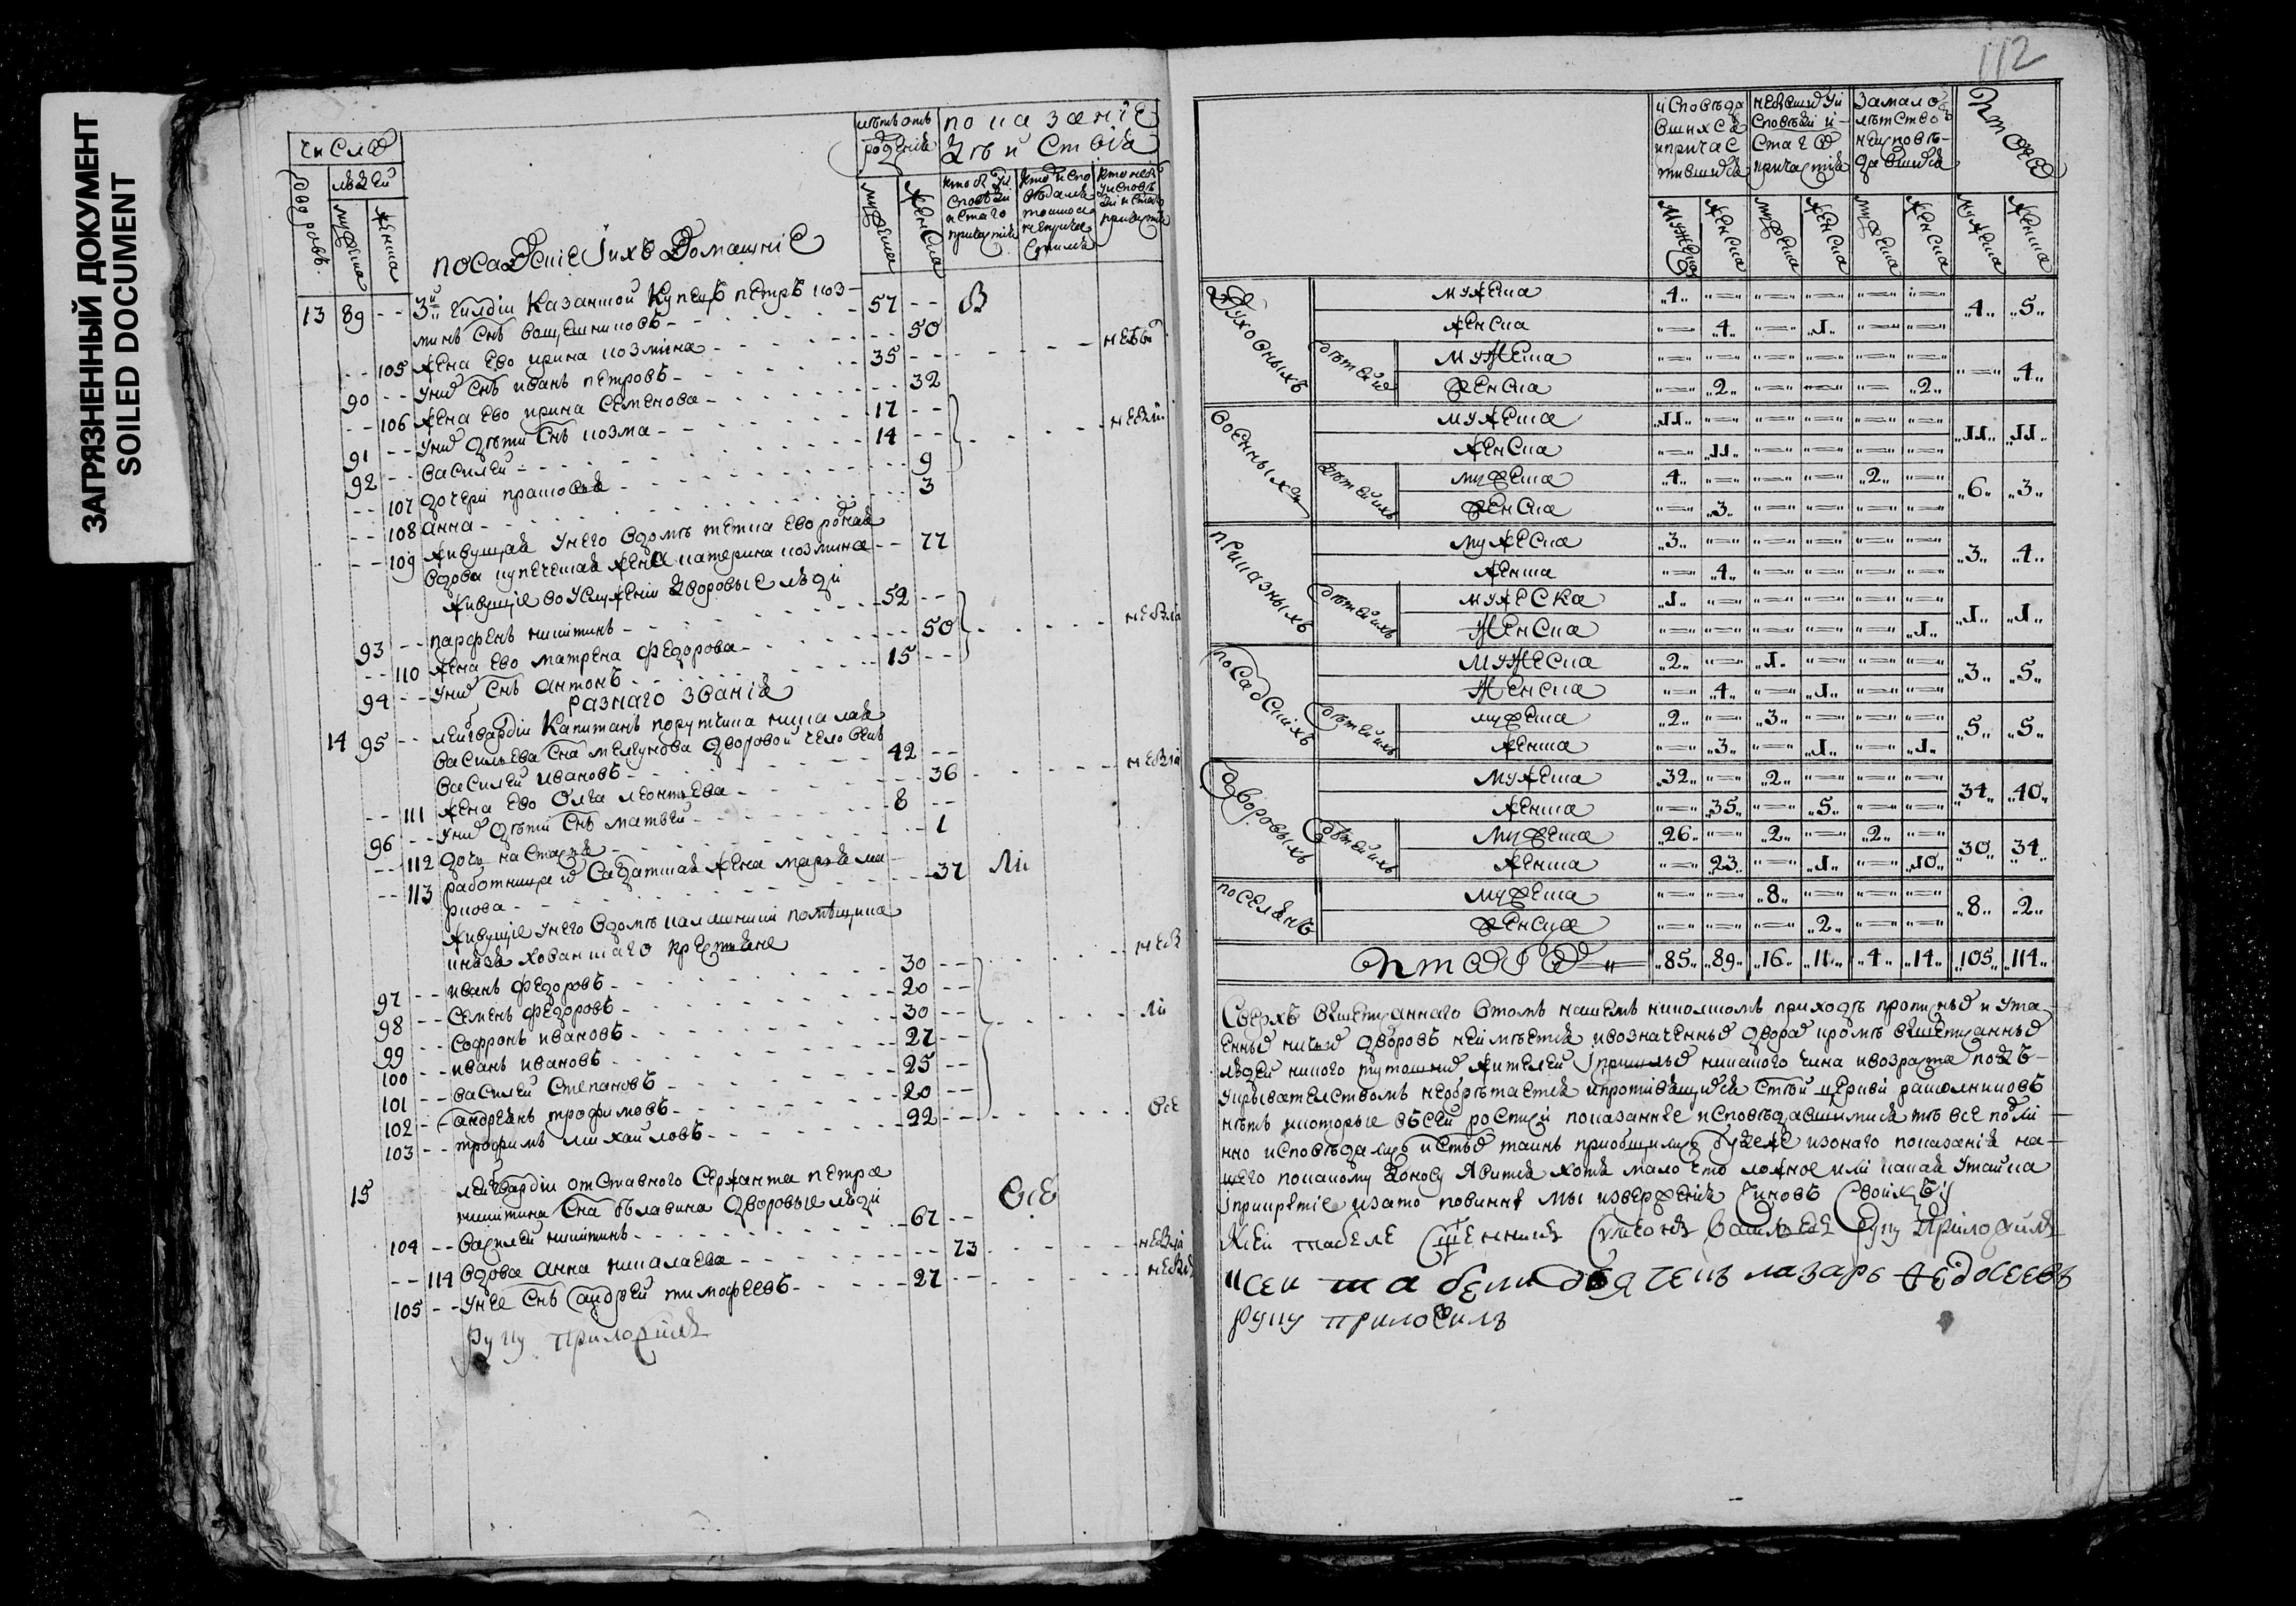 ЗАГРЯЗНЕННЫЙ ДОКУМЕНТ
SOILED DOCUMENT
числа
дворовъ
людей
мужеска
женска
посадские и ихъ домашние
лѣтъ отъ рождения
мужеска
женска
показание
дѣйствия
13 89 -- 3й гилдии казанской купецъ петръ коз-
минъ снъ 57 --
-- 105 жена ево ирина козмина -- 50
90 -- у них снъ иванъ петровъ 35 --
-- 106 жена ево ирина семенова -- 32
91 -- у них дѣти снъ козма 17 --
92 -- василей 14 --
-- 107 дочери прасковя 9
-- 108 анна 3
-- 109 живущая у него в домѣ тетка ево родная
вдова купеческая жена катерина козмина -- 77
живущие во услужении дворовые люди
93 -- парфенъ никитинъ 52 --
-- 110 жена ево матрена федорова -- 50
94 -- у них снъ антонъ 15 --
разнаго звания
14 95 -- лейгвардии капитанъ порутчика николая
васильева сна мелгунова дворовой человекъ
василей ивановъ 42 --
-- 111 жена ево олга леонтьева -- 36
96 -- у них дѣти снъ матвей 8 --
-- 112 дочь настасья -- 1
-- 113 работница салдатская жена марья ма-
ркова -- 37
живущие у него в домѣ калашники помѣщика
князя хованскаго крестьяне
97 -- иванъ федоровъ 30 --
98 -- семенъ федоровъ 20 --
99 -- софронъ ивановъ 30 --
100 -- иванъ ивановъ 27 --
101 -- василей степановъ 25 --
102 -- андреянъ трофимовъ 20 --
103 -- трофимъ михайловъ 22 --
15 лейгвардии отставного сержанта петра
никитина сна бѣлавина дворовые люди
104 -- василей никитинъ 67 --
-- 114 вдова анна николаева -- 73
105 -- у нее снъ андрей тимофеевъ 27 --
руку приложилъ
112
исповѣда
вшихся
и причас
тившихся
не бывших у и
сповѣди и
стаго
причастия
за мало
лѣтство
не исповѣ-
давшихся
итого
мужеска женска мужеска женска мужеска женска мужеска женска
духовныхъ
мужеска 4 4 5
женска 4 1
дѣтей их
мужеска 4
женска 2 2
военныхъ
мужеска 11 11 11
женска 11
дѣтей ихъ
мужеска 4 2 6 3
женска 3
приказныхъ
мужеска 3 3 4
женска 4
дѣтей ихъ
мужеска 1 1 1
женска 1
посадскихъ
мужеска 2 1 3 5
женска 4 1
дѣтей ихъ
мужеска 2 3 5 5
женска 3 1 1
дворовыхъ
мужеска 32 2 34 40
женска 35 5
дѣтей ихъ
мужеска 26 2 2 30 34
женска 23 1 10
поселянъ
мужеска 8 8 2
женска 2
итого 85 89 16 11 4 14 105 114
сверхъ вышеписаннаго в томъ нашемъ никольскомъ приходѣ пропущных и ута
енных ничьих дворовъ не имѣется и в означенных дворах кромѣ вышеписанных
людей никого тутошних жителей и пришлых никакого чина и возраста подъ
укрывателствомъ не обрѣтается и противящихся стой церкви расколниковъ
нѣтъ которые в сей росписи показанные исповѣдавшимися тѣ все подли
нно исповѣдались и стых таинъ приобщились буде же из онаго показания на
шего по какому доносу явится хотя мало что ложное или какая утайка
и прикрытие и за то повинны мы извержения чиновъ своихъ
к сей табеле священникъ симеонъ василевъ руку приложилъ
к сей табели дьячекъ лазарь федосеевъ
руку приложилъ